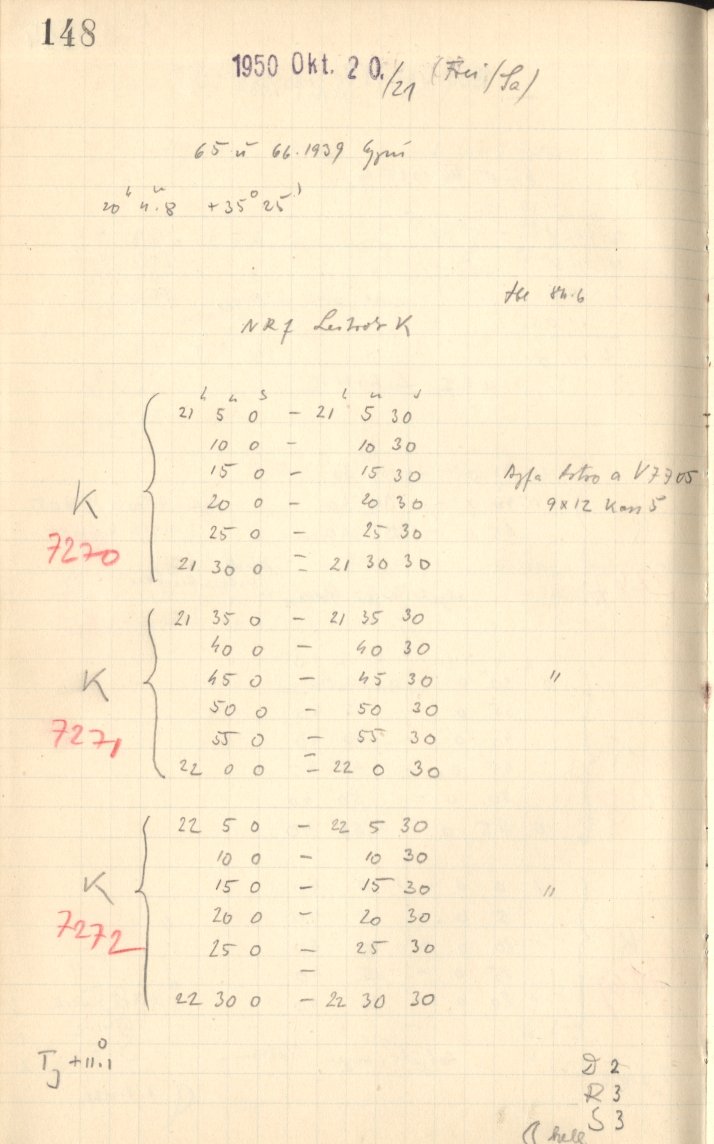 148
1950 Okt. 20./21 (Frei/Sa)
65 u 66.1939 Cygni
20 h m.8 +35° 25'
NRf K
h m s h m s
21 5 0 - 21 5 30
10 0 - 10 30
15 0 - 15 30
Agfa Astro a V7705
K
20 0 - 20 30
9x12 Kass 5
7270
25 0 - 25 30
21 30 0 = 21 30 30
21 35 0 - 21 35 30
40 0 - 40 30
K
45 0 - 45 30
"
50 0 - 50 30
7271
55 0 - 55 30
22 0 0 = 22 0 30
22 5 0 - 22 5 30
10 0 - 10 30
K
15 0 - 15 30
"
20 0 - 20 30
7272
25 0 - 25 30
-
22 30 0 - 22 30 30
TJ +11.°1
D 2
R 3
S 3
hell